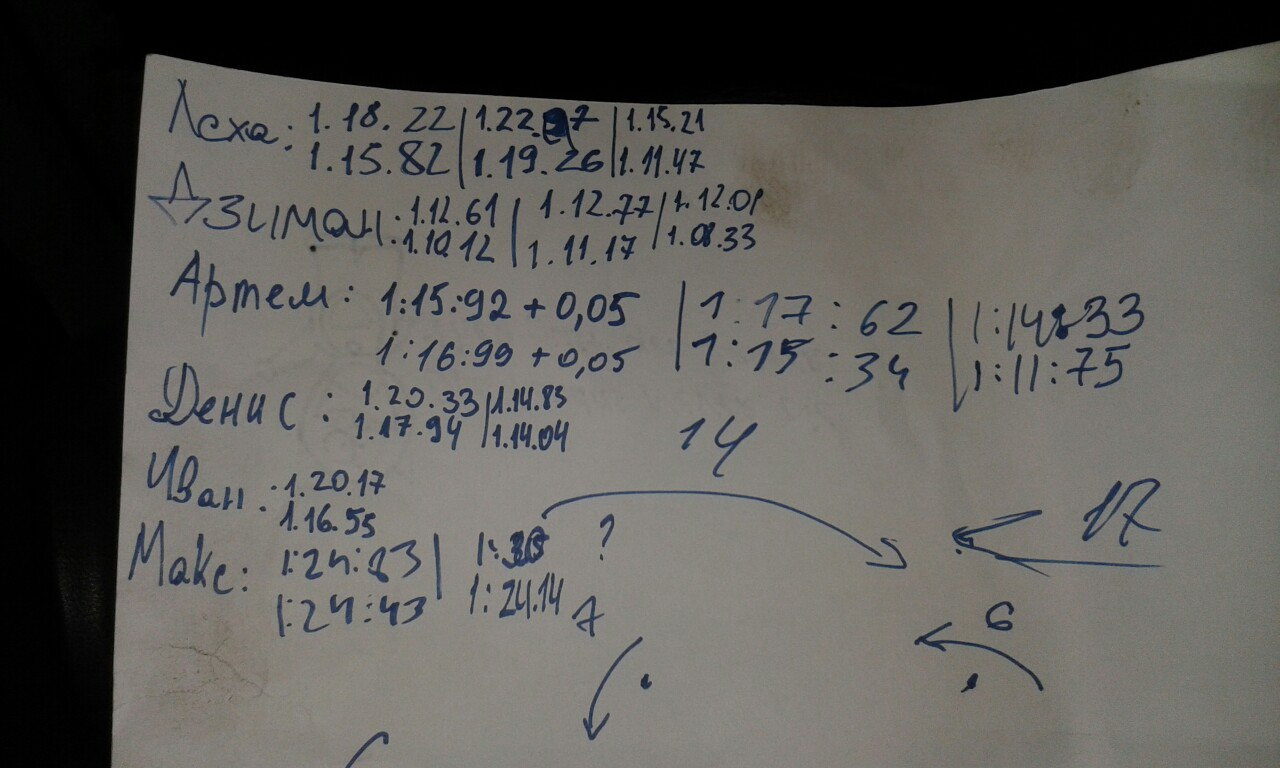 Леха: 1.18.22 | 1.22. 7 | 1.15.21
1.15.82 | 1.19.26 | 1.11.47
Зиман: 1.12.61 | 1.12.77 | 1.12.01
1.10.12 | 1.11.17 | 1.08.33
Артем: 1:15:92 + 0,05 | 1:17:62 | 1:14:33
1:16:99 + 0,05 | 1:15:34 | 1:11:75
Денис: 1.20.33 | 1.14.83
1.17.94 | 1.14.04
14
Иван: 1.20.17
1.16.55
17
Макс: 1:24:83 | ?
1:24:43 1:24.14
7
6